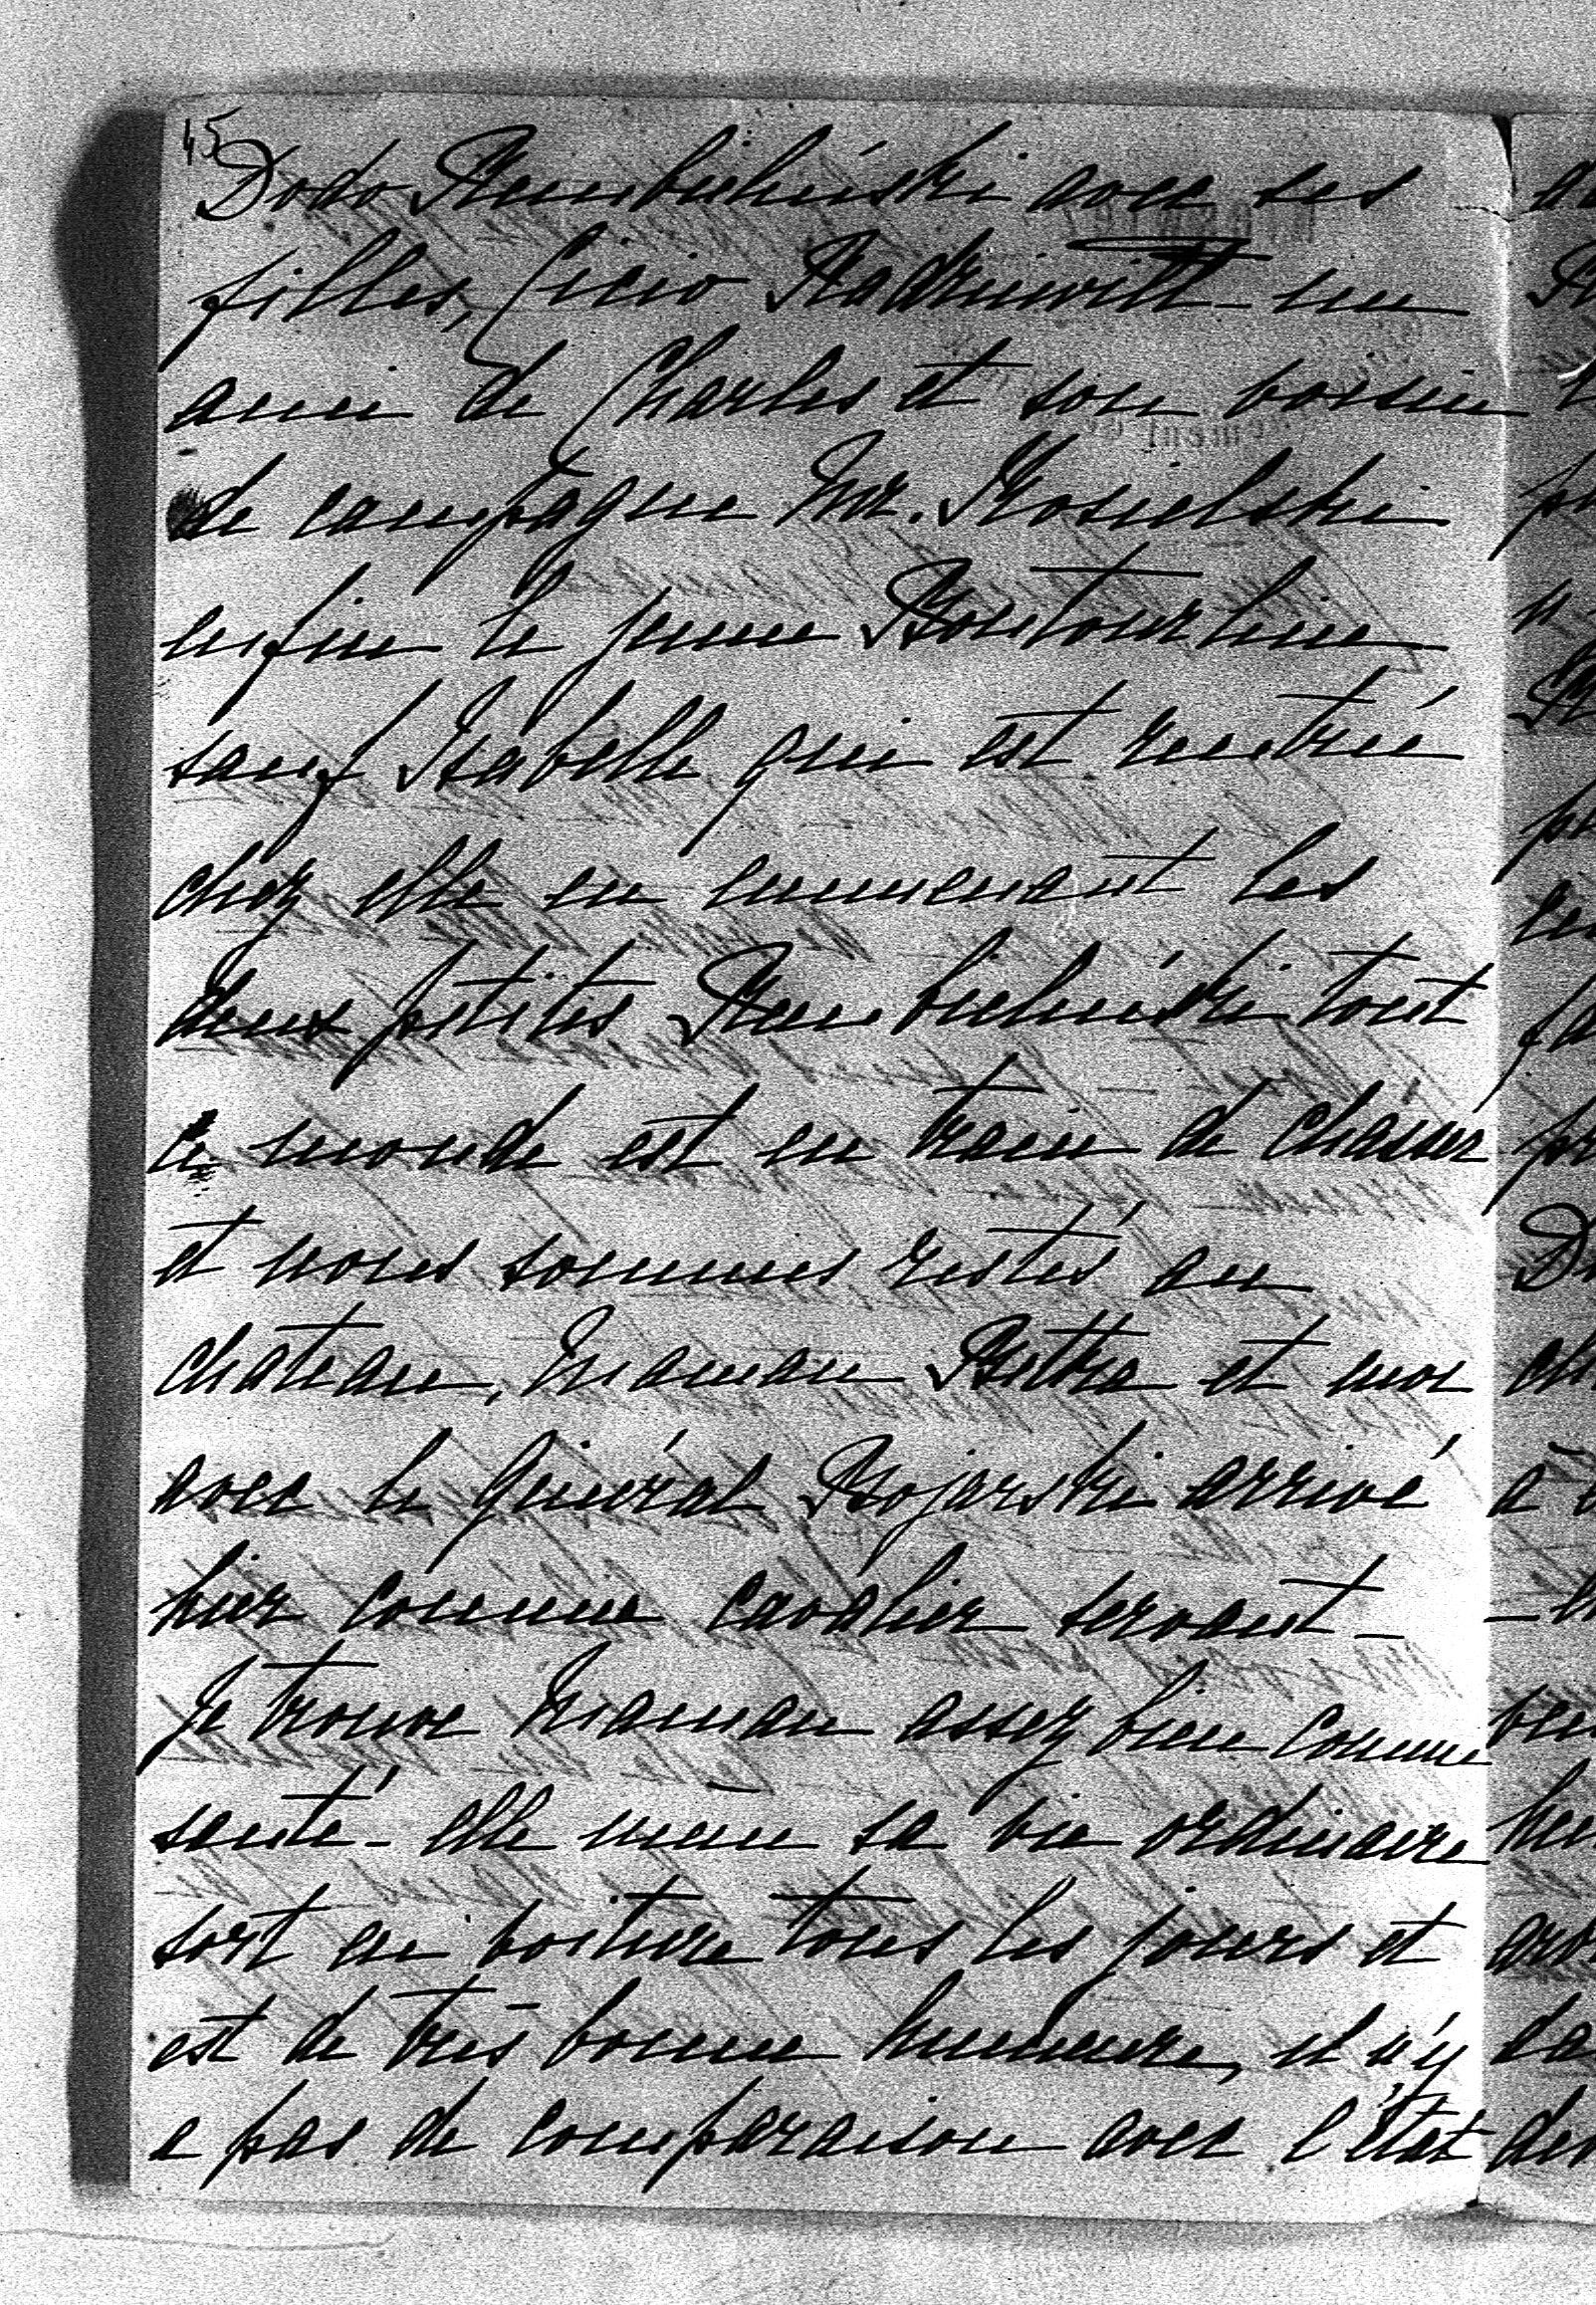 45
Dodo Rembieliński avec ses
filles, Cicio Radziwill – un
ami de Charles et son voisin
de campagne Mr. Kosielski
enfin le jeune Boutourline
sauf Isabelle qui est rentrée
chez elle en emmenant les
deux petites Rembieliński tout
le monde est en train de chasser
et nous sommes restés au
chateau, Maman Betka et moi
avec le Général Bojarski arrivé
hier comme cavalier servant –
Je trouve Maman assez bien comme
santé – elle mène sa vie ordinaire
sort en voiture tous les jours et
est de très bonne humeure, il n'y
a pas de comparaison avec l'état